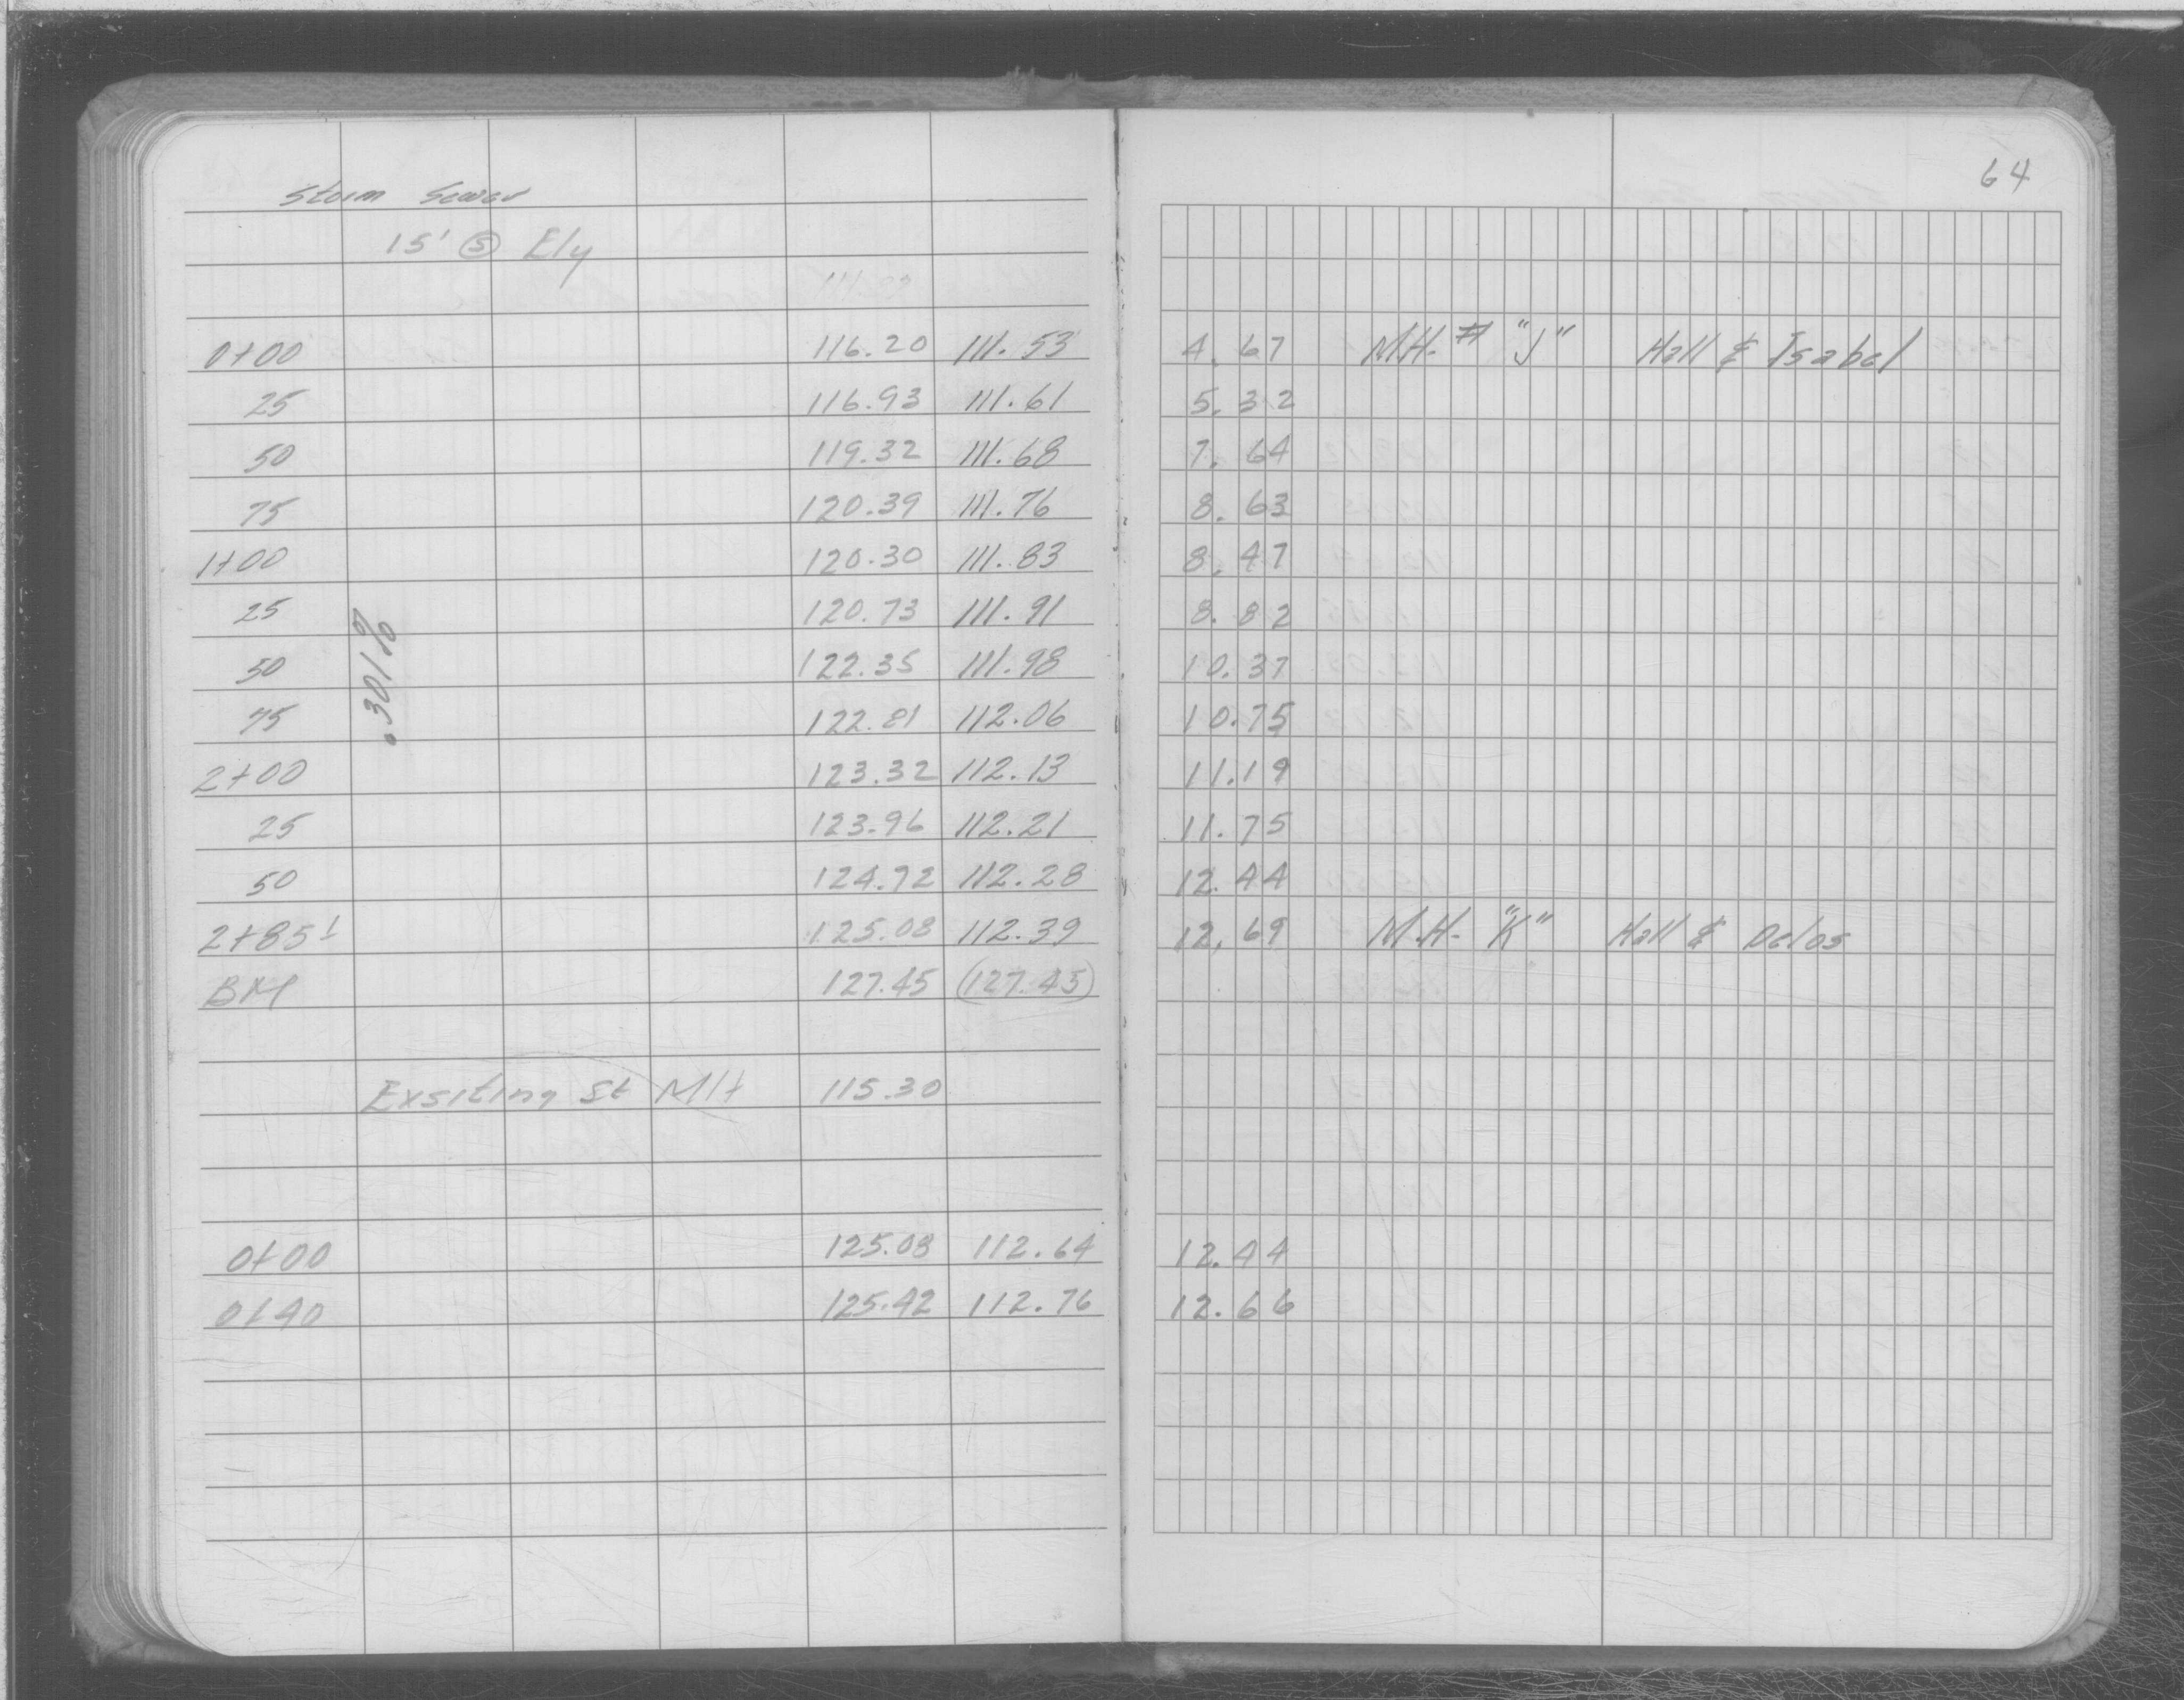 64
Storm Sewer
15' Ⓢ Ely
0+00 116.20 111.53 4.67 M.H. # "J" Hall & Isabel
25 116.93 111.61 5.32
50 119.32 111.68 7.64
75 120.39 111.76 8.63
1+00 120.30 111.83 8.47
25 120.73 111.91 8.82
50 122.35 111.98 10.37
75 122.81 112.06 10.75
2+00 123.32 112.13 11.19
25 123.96 112.21 11.75
50 124.72 112.28 12.44
2+85± 125.08 112.39 12.69 M.H. "K" Hall & Delos
.301%
BM 127.45 (127.45)
Exsiting St MH 115.30
0+00 125.08 112.64 12.44
0+40 125.42 112.76 12.66